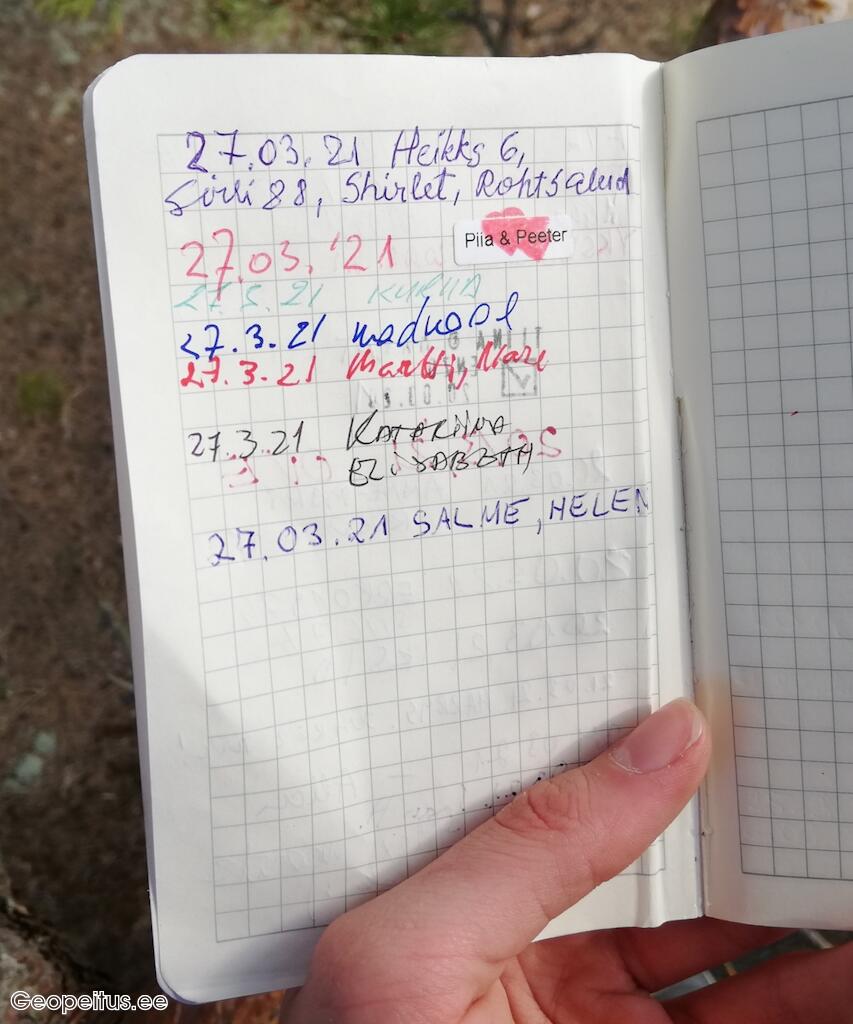 27.03.21 Heikks 6,
Sirli 88, Shirlet, Rohtsalud
27.03.'21 Piia & Peeter
27.3.21
27.3.21
27.3.21 Martti, Mare
27.3.21 KATARIINA
ELISABETH
27.03.21 SALME, HELEN
Geopeitus.ee